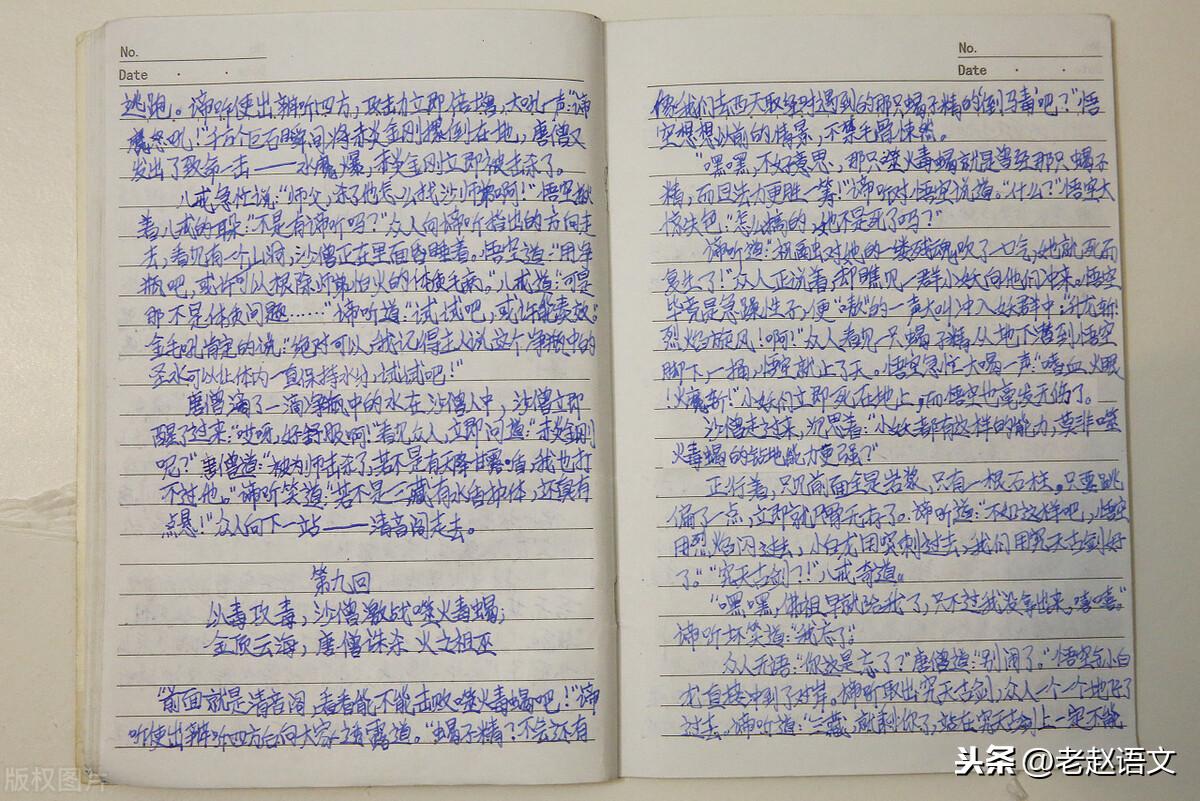 No.
Date
逃跑。谛听使出辨听四方,攻击力立即倍增,大吼一声:“谛
怒吼!”千万个巨石瞬间将赤炎金刚摞倒在地,唐僧又
发出了致命一击——水魔爆,赤炎金刚立即被击杀了。
八戒急忙说:“师父,杀了他怎么找沙师弟啊!”悟空揪
着八戒的耳朵:“不是有谛听吗?”众人向谛听指出的方向走
去,看见有一个山洞,沙僧正在里面昏睡着。悟空道:“用净
瓶吧,或许可以根除师弟怕火的体质毛病。”八戒道:“可是
那不是体质问题……”谛听道:“试试吧,或许能奏效。”
金毛吼肯定的说:“绝对可以,我记得主人说这个净瓶中的
圣水可以让体内一直保持水分,试试吧!”
唐僧滴了一滴净瓶中的水在沙僧人中,沙僧立即
醒了过来:“哎呀,好舒服啊!”看见众人,立即问道:“赤炎金刚
呢?”唐僧道:“被为师击杀了,若不是有天降甘露盾,我也打
不过他。”谛听笑道:“若不是三藏有水盾护体,还真有
点悬!”众人向下一站——清音阁走去。
第九回
以毒攻毒,沙僧激战噬火毒蝎;
金顶云海,唐僧诛杀火之祖巫
“前面就是清音阁,看看能不能击败噬火毒蝎吧!”谛
听使出辨听四方后向大家透露道。“蝎子精?不会还有
No.
Date
像我们去西天取经时遇到的那只蝎子精的倒马毒吧?”悟
空想想以前的情景,不禁毛骨悚然。
“嘿嘿,不好意思,那只噬火毒蝎就是曾经那只蝎子
精,而且法力更胜一筹!”谛听对悟空说道。“什么?”悟空大
惊失色:“怎么搞的,她不是死了吗?”
谛听道:“祝融对她的一缕残魂吹了一口气,她就死而
复生了!”众人正说着,却瞧见一群小妖向他们冲来。悟空
毕竟是急躁性子,便“嗷”的一声大叫冲入妖群中:“升龙斩!
烈焰旋风!啊!”众人看见一只蝎子精从地下遁到悟空
脚下,一捅,悟空就上了天。悟空急忙大喝一声:“嗜血火眼
!火魔斩!”小妖们立即死在地上,而悟空也毫发无伤了。
沙僧走过来,沉思着:“小妖都有这样的能力,莫非噬
火毒蝎的钻地能力更强?”
正行着,只见前面全是岩浆,只有一根石柱。只要跳
偏了一点,立即就尸骨无存了。谛听道:“不如这样吧,悟空
用烈焰闪过去,小白龙用突刺过去,我们用究天古剑好
了。”“究天古剑?!”八戒奇道。
“嘿嘿,佛祖早就给我了,只不过我没拿出来,嘻嘻。”
谛听坏笑道:“我忘了。”
众人无语:“你这是忘了?”唐僧道:“别闹了。”悟空与小白
龙直接冲到了对岸。谛听取出究天古剑,众人一个一个地
过去。谛听道:“三藏,就剩你了,站在究天古剑上一定不能
版权图片
头条@老赵语文